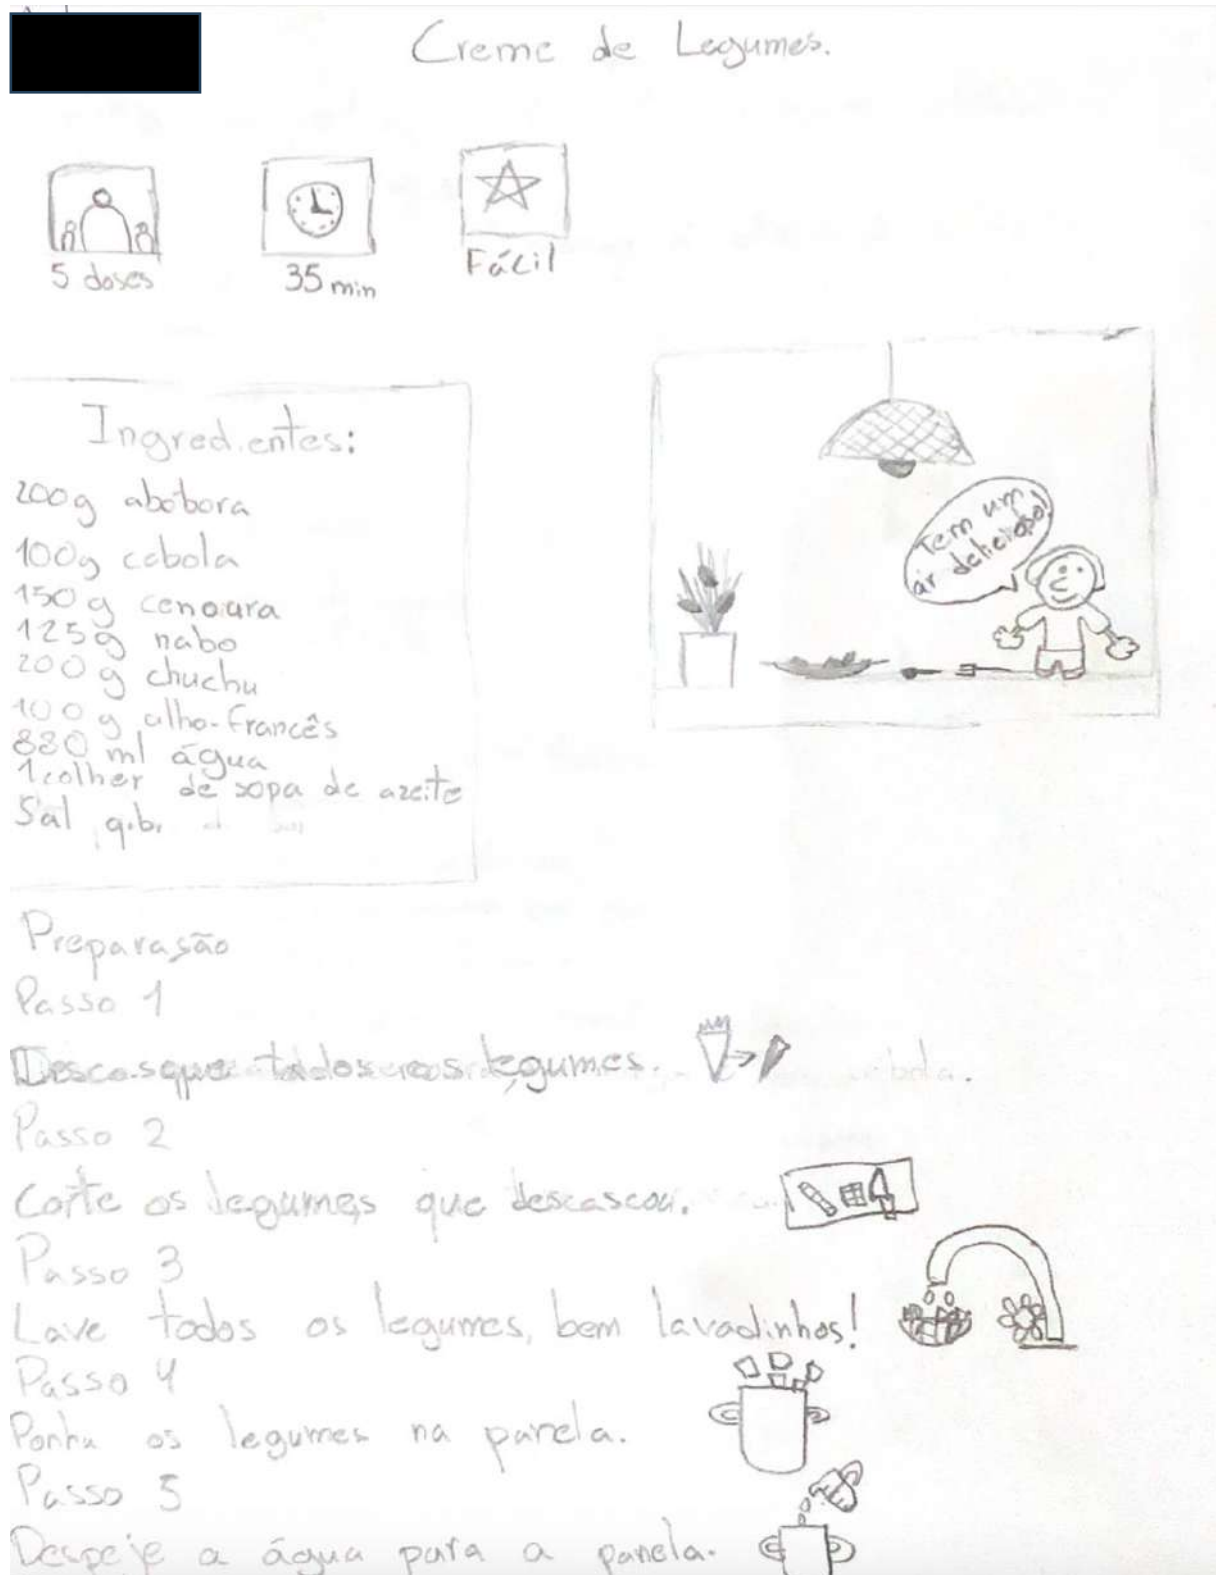 Creme de Legumes.
5 doses
35 min
Fácil
Ingredientes:
200g abóbora
100g cebola
150g cenoura
125g nabo
200g chuchu
100g alho-francês
880 ml água
1 colher de sopa de azeite
Sal q.b.
Tem um
ar delicioso!
Preparasão
Passo 1
Descasque todos os legumes.
Passo 2
Corte os legumes que descascou.
Passo 3
Lave todos os legumes, bem lavadinhos!
Passo 4
Ponha os legumes na panela.
Passo 5
Despeje a água para a panela.